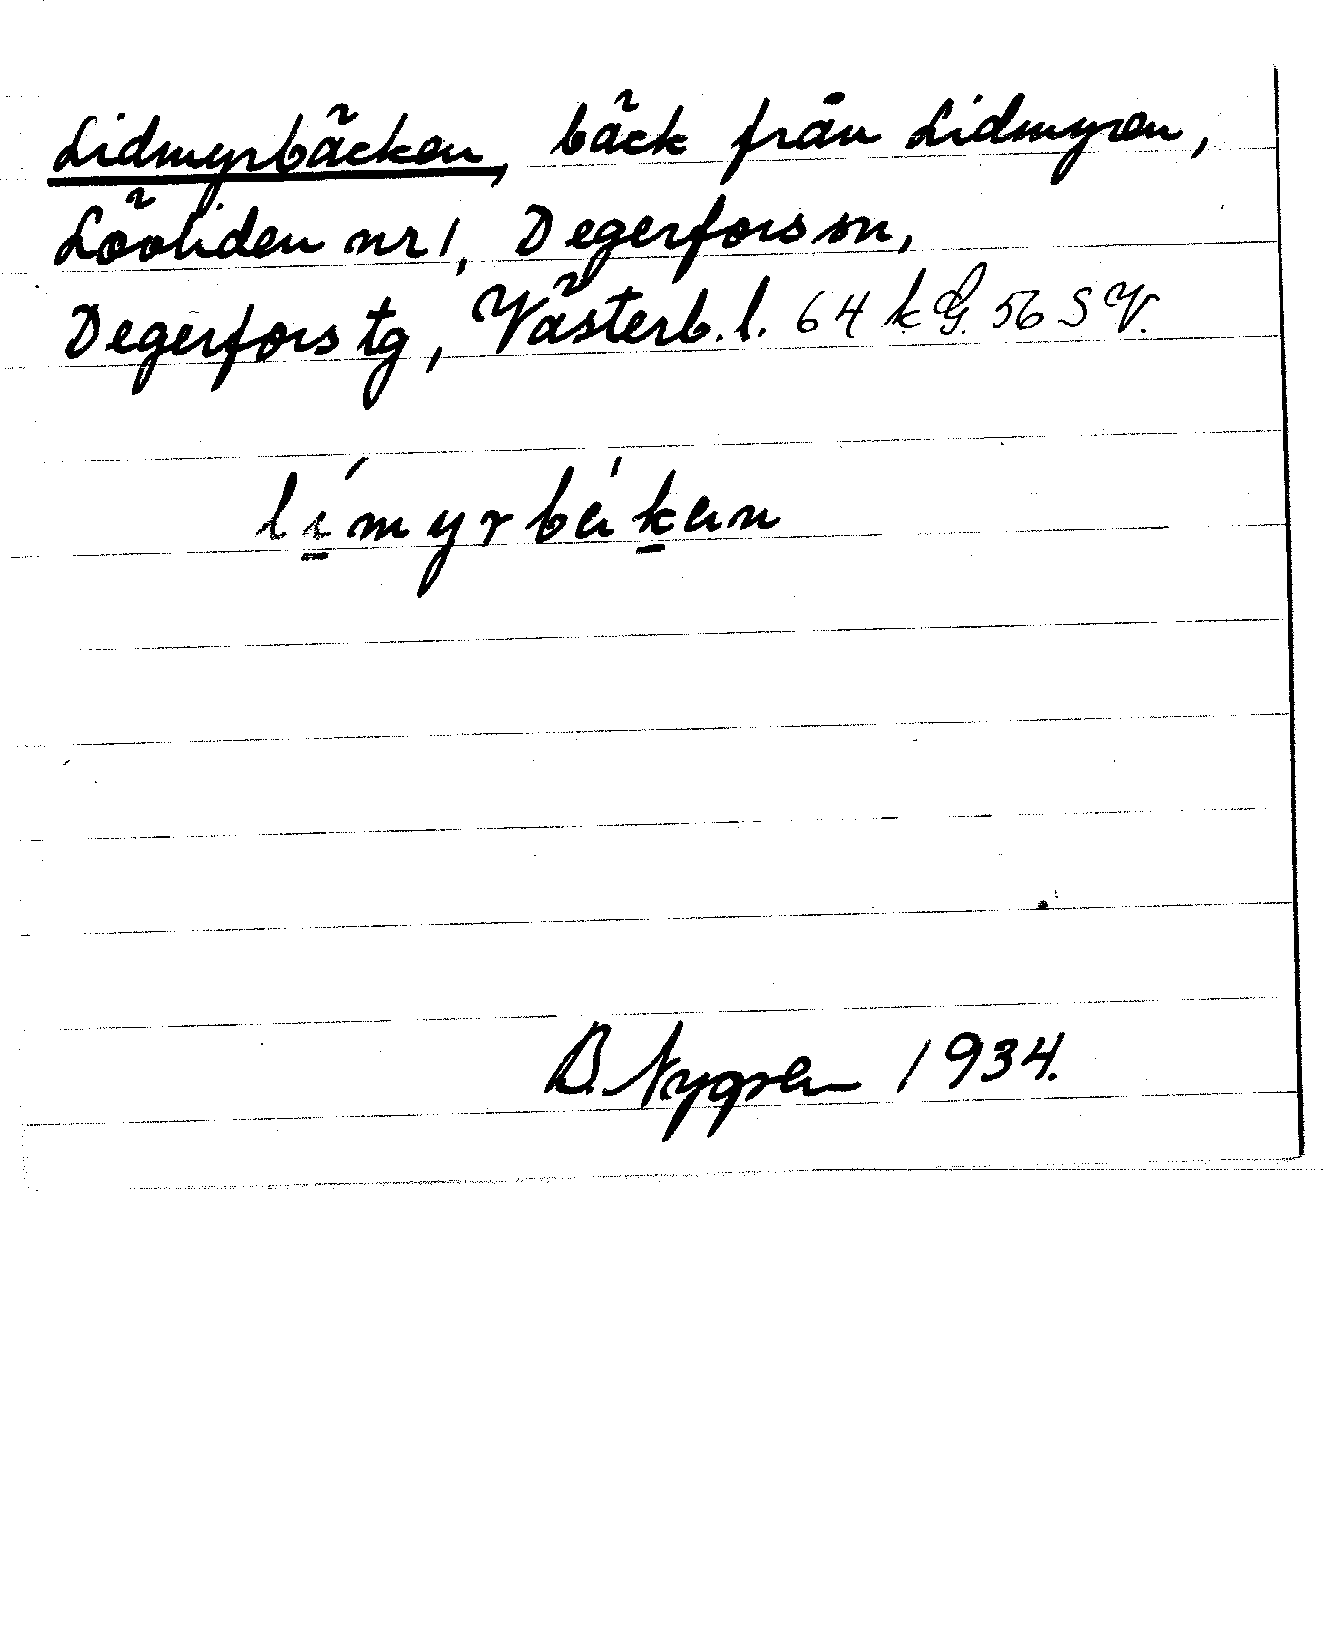 Lidmyrbäcken, bäck från Lidmyren,
Lövliden nr 1, Degerfors sn,
Degerfors tg, Västerb. l. 64 kG. 56 S V.
B. Nygren 1934.